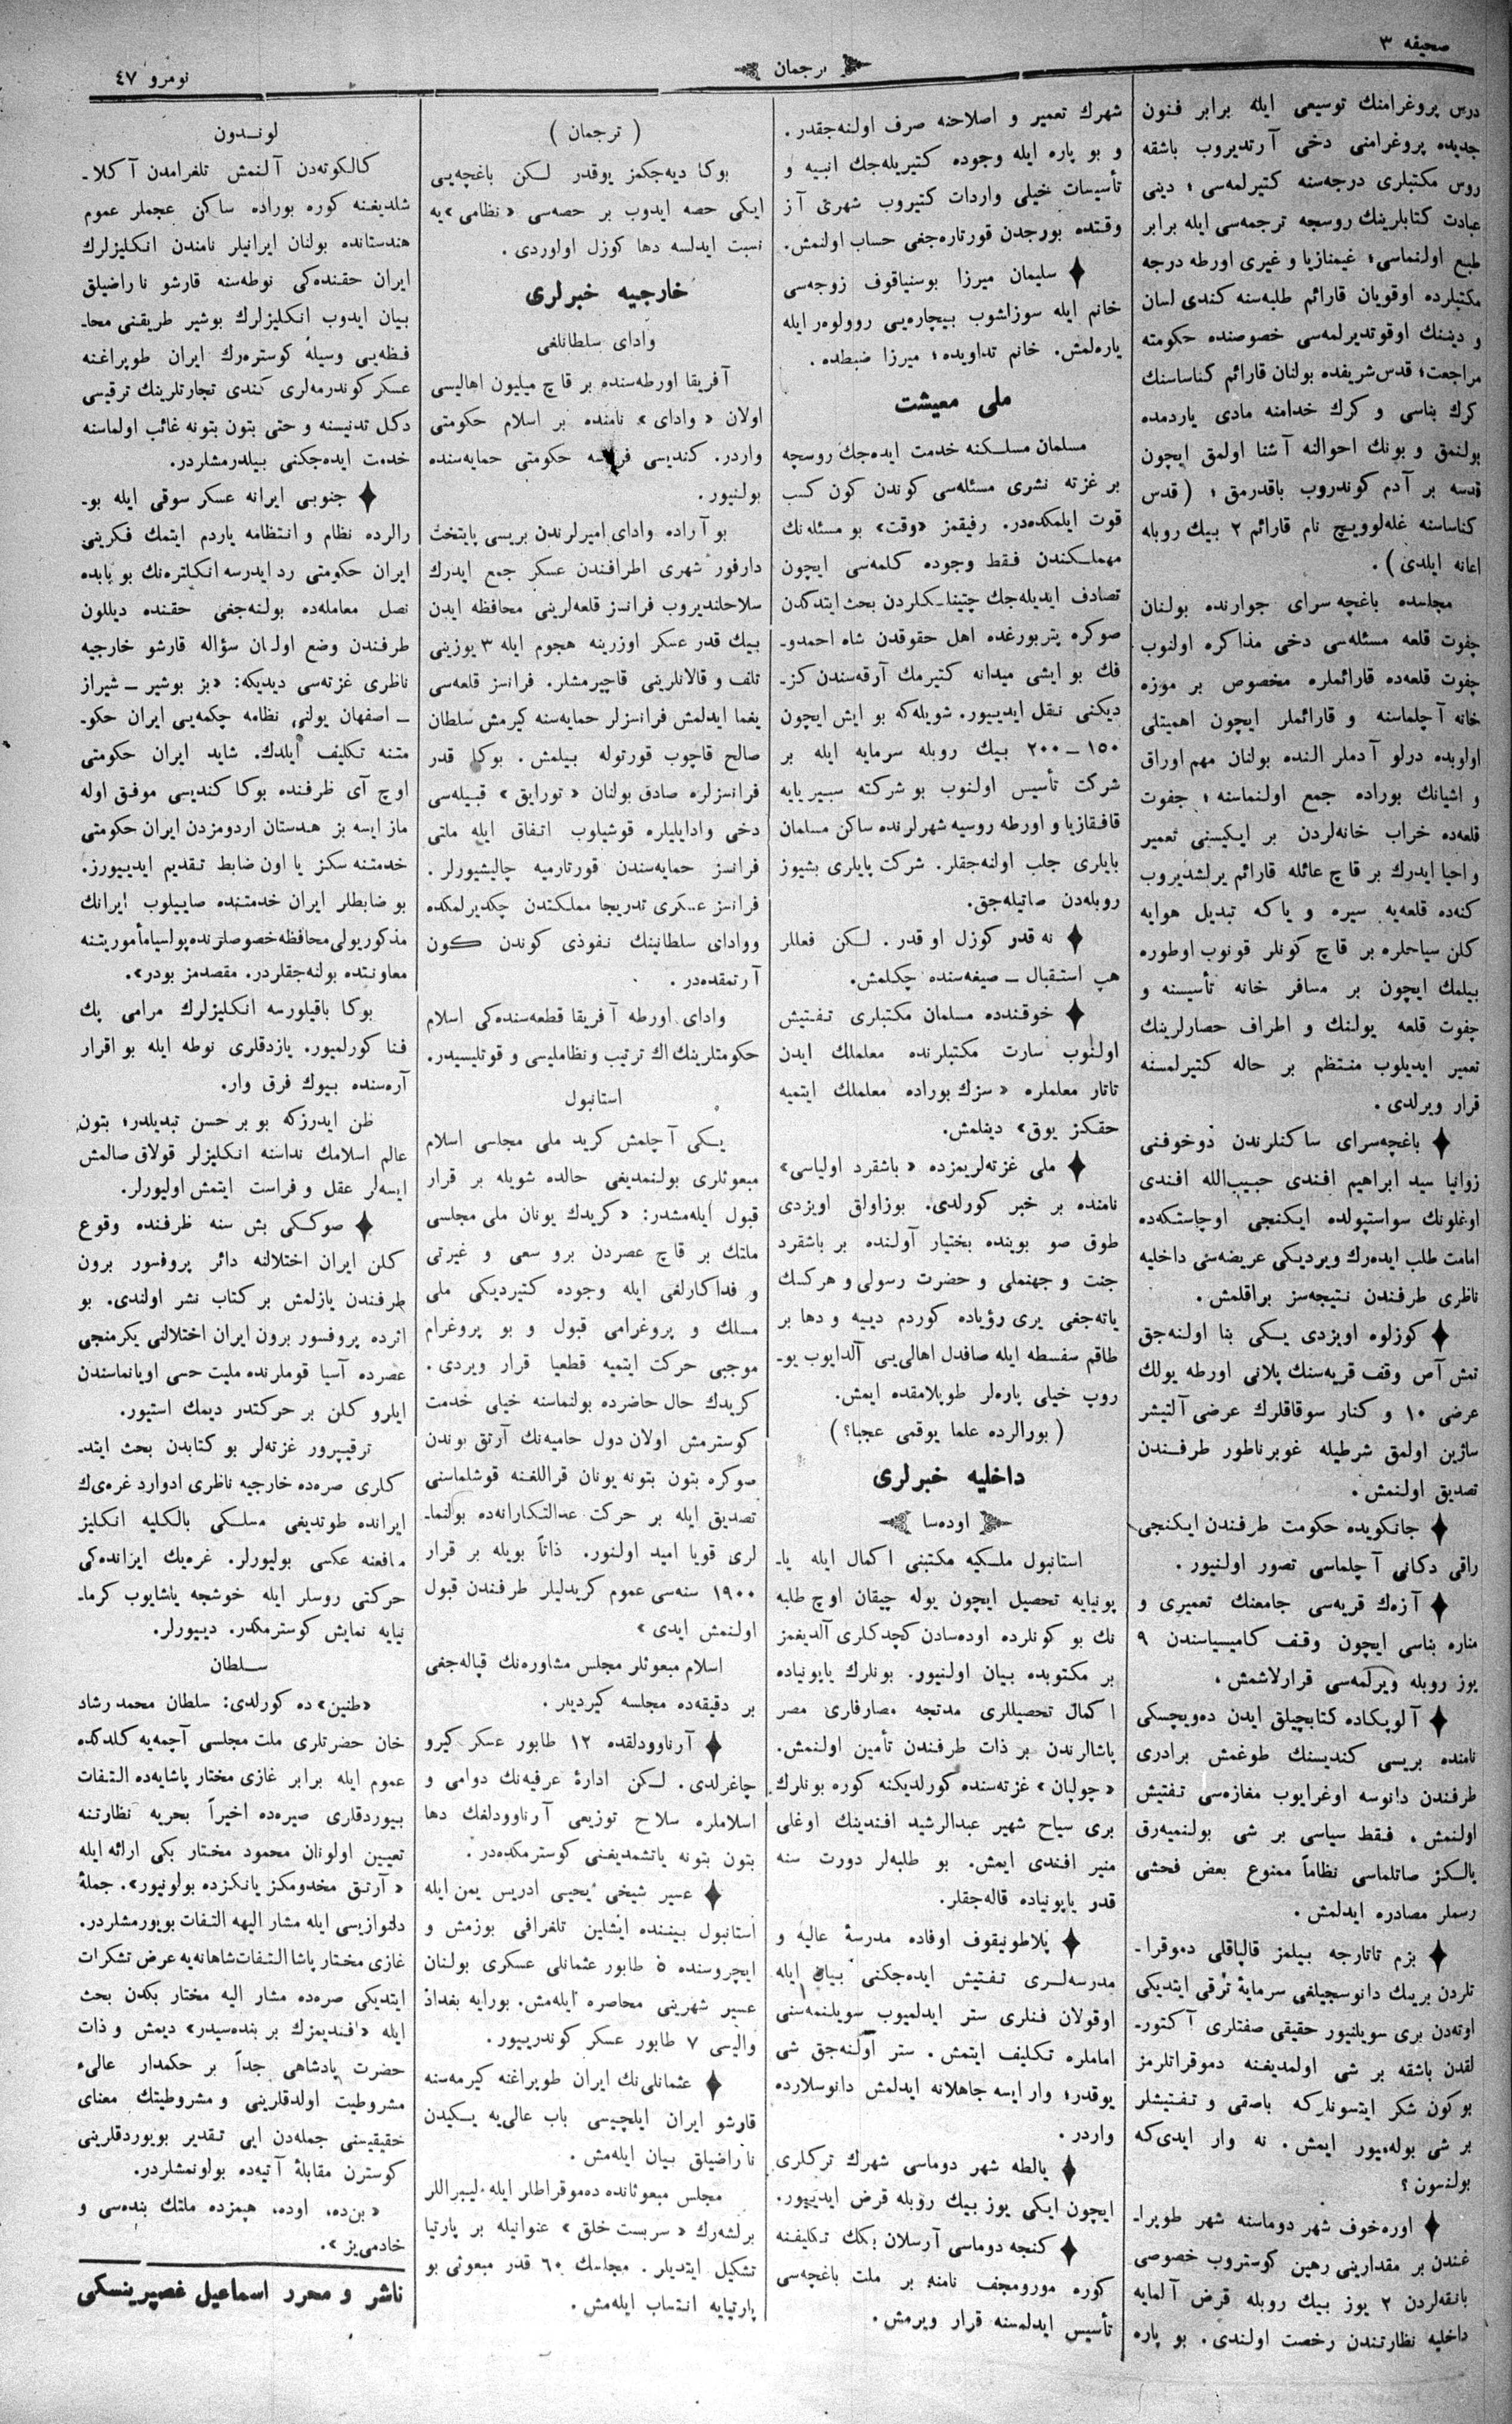 صحیفه ۳
ترجمان
نومرو ٤٧
درس پروغرامنك توسیعی ایله برابر فنون
جدیده پروغرامنی دخی آرتدیروب باشقه
روس مکتبلری درجه‌سنه کتیرلمه‌سی ؛ دینی
عبادت کتابلرینك روسچه ترجمه‌سی ایله برابر
طبع اولنماسی؛ غیمنازیا و غیری اورطه درجه
مکتبلرده اوقویان قارائم طلبه‌سنه کندی لسان
و دیننك اوقوتدیرلمه‌سی خصوصنده حکومته
مراجعت؛ قدس شریفده بولنان قارائم کناساسنك
کرك بناسی و کرك خدامنه مادی یاردمده
بولنمق و بونك احوالنه آشنا اولمق ایچون
قدسه بر آدم کوندروب باقدرمق ؛ (قدس
کناساسنه غله‌لوویچ نام قارائم ۲ بیك روبله
اعانه ایلدی).
مجلسده باغچه سرای جوارنده بولنان
جفوت قلعه مسئله‌سی دخی مذاکره اولنوب
جفوت قلعه‌ده قارائملره مخصوص بر موزه
خانه آچلماسنه و قارائملر ایچون اهمیتلی
اولوبده درلو آدملر النده بولنان مهم اوراق
و اشیانك بوراده جمع اولنماسنه ؛ جفوت
قلعه‌ده خراب خانه‌لردن بر ایکیسنی تعمیر
و احیا ایدرك بر قاچ عائله قارائم یرلشدیروب
کنه‌ده قلعه‌یه سیره و یاکه تبدیل هوایه
کلن سیاحلره بر قاچ کونلر قونوب اوطوره
بیلمك ایچون بر مسافر خانه تأسیسنه و
جفوت قلعه یولنك و اطراف حصارلرینك
تعمیر ایدیلوب منتظم بر حاله کتیرلمسنه
قرار ویرلدی .
باغچه‌سرای ساکنلرندن دوخوفنی
زوانیا سید ابراهیم افندی حبیب‌الله افندی
اوغلونك سواستپولده ایکنجی اوچاستکه‌ده
امامت طلب ایده‌رك ویردیکی عریضه‌سی داخلیه
ناظری طرفندن نتیجه‌سز براقلمش .
کوزلوه اویزدی یکی بنا اولنه‌جق
تمش آص وقف قریه‌سنك پلانی اورطه یولك
عرضی ۱۰ و کنار سوقاقلرك عرضی آلتیشر
ساژین اولمق شرطیله غوبرناطور طرفندن
تصدیق اولنمش .
جانکویده حکومت طرفندن ایکنجی
راقی دکانی آچلماسی تصور اولنیور .
آزه‌ك قریه‌سی جامعنك تعمیری و
مناره بناسی ایچون وقف کامیسیاسندن ۹
یوز روبله ویرلمه‌سی قرارلاشمش .
آلوپکاده کتابچیلق ایدن ده‌ویچسکی
نامنده بریسی کندیسنك طوغمش برادری
طرفندن دانوسه اوغرایوب مغازه‌سی تفتیش
اولنمش . فقط سیاسی بر شی بولنمیه‌رق
یالکز صاتلماسی نظاماً ممنوع بعض فحشی
رسملر مصادره ایدلمش .
بزم تاتارجه بیلمز قالپاقلی ده‌موقرا-
تلردن بریك دانوسجیلغی سرمایهٔ ترقی ایتدیکی
اوته‌دن بری سویلنیور حقیقی صفتلری آکتور-
لقدن باشقه بر شی اولمدیغنه دموقراتلرمز
بوکون شکر ایتسونلرکه باصقی و تفتیشلر
بر شی بوله‌میور ایمش . نه وار ایدی‌که
بولنسون ؟
اوره‌خوف شهر دوماسنه شهر طوپرا-
غندن بر مقدارینی رهین کوستروب خصوصی
بانقه‌لردن ۲ یوز بیك روبله قرض آلمایه
داخلیه نظارتندن رخصت اولندی . بو پاره
شهرك تعمیر و اصلاحنه صرف اولنه‌جقدر .
و بو پاره ایله وجوده کتیریله‌جك ابنیه و
تأسیسات خیلی واردات کتیروب شهری آز
وقتده بورجدن قورتاره‌جغی حساب اولنمش.
سلیمان میرزا بوسنیاقوف زوجه‌سی
خانم ایله سوزاشوب بیچاره‌یی روولوه‌ر ایله
یاره‌لمش. خانم تداویده ؛ میرزا ضبطده .
ملی معیشت
مسلمان مسلكنه خدمت ایده‌جك روسچه
بر غزته نشری مسئله‌سی کوندن کون کسب
قوت ایلمکده‌در. رفیقمز «وقت» بو مسئله‌نك
مهملکندن فقط وجوده کلمه‌سی ایچون
تصادف ایدیله‌جك چتینلکلردن بحث ایتدکدن
صوکره پتربورغده اهل حقوقدن شاه احمدو-
فك بو ایشی میدانه کتیرمك آرقه‌سندن کز-
دیکنی نقل ایدییور. شویله‌که بو ایش ایچون
۱۵۰ – ۲۰۰ بیك روبله سرمایه ایله بر
شرکت تأسیس اولنوب بو شرکته سیبیریایه
قافقازیا و اورطه روسیه شهرلرنده ساکن مسلمان
بایلری جلب اولنه‌جقلر. شرکت پایلری بشیوز
روبله‌دن صاتیله‌جق.
نه قدر کوزل او قدر . لکن فعللر
هپ استقبال – صیغه‌سنده چکلمش.
خوقندده مسلمان مکتبلری تفتیش
اولنوب سارت مکتبلرنده معلملك ایدن
تاتار معلملره «سزك بوراده معلملك ایتمیه
حقکز یوق» دینلمش.
ملی غزته‌لریمزده «باشقرد اولیاسی»
نامنده بر خبر کورلدی. بوزاولق اویزدی
طوق صو بوینده بختیار آولنده بر باشقرد
جنت و جهنملی و حضرت رسولی و هرکسك
یاته‌جغی یری رؤیاده کوردم دییه و دها بر
طاقم سفسطه ایله صافدل اهالی‌یی آلدایوب یو-
روپ خیلی پاره‌لر طوپلامقده ایمش.
(بورالرده علما یوقمی عجبا؟)
داخلیه خبرلری
اوده‌سا
استانبول ملکیه مکتبنی اکمال ایله یا-
پونیایه تحصیل ایچون یوله چیقان اوچ طلبه
نك بو کونلرده اوده‌سادن کچدکلری آلدیغمز
بر مکتوبده بیان اولنیور. بونلرك یاپونیاده
اکمال تحصیللری مدتجه مصارفاری مصر
پاشالرندن بر ذات طرفندن تأمین اولنمش.
«چولپان» غزته‌سنده کورلدیکنه کوره بونلرك
بری سیاح شهیر عبدالرشید افندینك اوغلی
منیر افندی ایمش. بو طلبه‌لر دورت سنه
قدر یاپونیاده قاله‌جقلر.
پلاطونیقوف اوفاده مدرسهٔ عالیه و
مدرسه‌لری تفتیش ایده‌جکنی بیان ایله
اوقولان فنلری ستر ایدلمیوب سویلنمه‌سنی
اماملره تکلیف ایتمش . ستر اولنه‌جق شی
یوقدر؛ وار ایسه جاهلانه ایدلمش دانوسلارده
واردر .
یالطه شهر دوماسی شهرك ترکلری
ایچون ایکی یوز بیك روبله قرض ایدییور.
کنجه دوماسی آرسلان بکك تکلیفنه
کوره مورومجف نامنه بر ملت باغچه‌سی
تأسیس ایدلمسنه قرار ویرمش .
(ترجمان)
بوکا دیه‌جکمز یوقدر لکن باغچه‌یی
ایکی حصه ایدوب بر حصه‌سی «نظامی»یه
نسبت ایدلسه دها کوزل اولوردی .
خارجیه خبرلری
وادای سلطانلغی
آفریقا اورطه‌سنده بر قاچ میلیون اهالیسی
اولان «وادای» نامنده بر اسلام حکومتی
واردر. کندیسی حکومتی حمایه‌سنده
بولنیور .
بو آراده وادای امیرلرندن بریسی پایتخت
دارفور شهری اطرافندن عسکر جمع ایدرك
سلاحلندیروب فرانسز قلعه‌لرینی محافظه ایدن
بیك قدر عسکر اوزرینه هجوم ایله ۳ یوزینی
تلف و قالانلرینی قاچیرمشلر. فرانسز قلعه‌سی
یغما ایدلمش فرانسزلر حمایه‌سنه کیرمش سلطان
صالح قاچوب قورتوله بیلمش . بوکا قدر
فرانسزلره صادق بولنان «تورایق» قبیله‌سی
دخی وادایلیلره قوشیلوب اتفاق ایله ملتی
فرانسز حمایه‌سندن قورتارمیه چالیشیورلر .
فرانسز عسکری تدریجا مملکتدن چکدیرلمکده
ووادای سلطانینك نفوذی کوندن کون
آرتمقده‌در .
وادای اورطه آفریقا قطعه‌سنده‌کی اسلام
حکومتلرینك اك ترتیب و نظاملیسی و قوتلیسیدر.
استانبول
یکی آچلمش کرید ملی مجلسی اسلام
مبعوثلری بولنمدیغی حالده شویله بر قرار
قبول ایله‌مشدر: «کریدك یونان ملی مجلسی
ملتك بر قاچ عصردن برو سعی و غیرتی
و فداکارلغی ایله وجوده کتیردیکی ملی
مسلك و پروغرامی قبول و بو پروغرام
موجبی حرکت ایتمیه قطعیا قرار ویردی .
کریدك حال حاضرده بولنماسنه خیلی خدمت
کوسترمش اولان دول حامیه‌نك آرتق بوندن
صوکره بتون بتونه یونان قراللغنه قوشلماسنی
تصدیق ایله بر حرکت عدالتکارانه‌ده بولنما-
لری قویا امید اولنور. ذاتاً بویله بر قرار
۱۹۰۰ سنه‌سی عموم کریدلیلر طرفندن قبول
اولنمش ایدی»
اسلام مبعوثلر مجلس مشاوره‌نك قپاله‌جغی
بر دقیقه‌ده مجلسه کیردیلر .
آرناوودلقده ۱۲ طابور عسکر کیرو
چاغرلدی . لکن ادارهٔ عرفیه‌نك دوامی و
اسلاملره سلاح توزیعی آرناوودلغك دها
بتون بتونه یاتشمدیغنی کوسترمکده‌در .
عسیر شیخی یحیی ادریس یمن ایله
استانبول بیننده ایشلین تلغرافی بوزمش و
ایچروسنده ٥ طابور عثمانلی عسکری بولنان
عسیر شهرینی محاصره ایله‌مش. بورایه بغداد
والیسی ۷ طابور عسکر کوندرییور .
عثمانلی‌نك ایران طوپراغنه کیرمه‌سنه
قارشو ایران ایلچیسی باب عالی‌یه یکیدن
ناراضیلق بیان ایله‌مش .
مجلس مبعوثانده ده‌موقراطلر ایله لیبراللر
برلشه‌رك «سربست خلق» عنوانیله بر پارتیا
تشکیل ایتدیلر . مجلسك ٦۰ قدر مبعوثی بو
پارتیایه انتساب ایله‌مش .
لوندون
کالکوته‌دن آلنمش تلغرامدن آکلا-
شلدیغنه کوره بوراده ساکن عجملر عموم
هندستانده بولنان ایرانیلر نامندن انکلیزلرك
ایران حقنده‌کی نوطه‌سنه قارشو ناراضیلق
بیان ایدوب انکلیزلرك بوشیر طریقنی محا-
فظه‌یی وسیله کوستره‌رك ایران طوپراغنه
عسکر کوندرمه‌لری کندی تجارتلرینك ترقیسی
دکل تدنیسنه و حتی بتون بتونه غائب اولماسنه
خدمت ایده‌جکنی بیلدرمشلردر.
جنوبی ایرانه عسکر سوقی ایله بو-
رالرده نظام و انتظامه یاردم ایتمك فکرینی
ایران حکومتی رد ایدرسه انکلتره‌نك بو بابده
نصل معامله‌ده بولنه‌جغی حقنده دیللون
طرفندن وضع اولنان سؤاله قارشو خارجیه
ناظری غزته‌سی دیدیکه: «بز بوشیر – شیراز
– اصفهان یولنی نظامه چکمه‌یی ایران حکو-
متنه تکلیف ایلدك. شاید ایران حکومتی
اوچ آی ظرفنده بوکا کندیسی موفق اوله
ماز ایسه بز هندستان اردومزدن ایران حکومتی
خدمتنه سکز یا اون ضابط تقدیم ایدییورز.
بو ضابطلر ایران خدمتنده صاییلوب ایرانك
مذکور یولی محافظه خصوصلرنده پولسیا مأموریتنه
معاونتده بولنه‌جقلردر. مقصدمز بودر».
بوکا باقیلورسه انکلیزلرك مرامی پك
فنا کورلمیور. یازدقلری نوطه ایله بو اقرار
آره‌سنده بیوك فرق وار.
ظن ایدرزکه بو بر حسن تبدیلدر؛ بتون
عالم اسلامك نداسنه انکلیزلر قولاق صالمش
ایسه‌لر عقل و فراست ایتمش اولیورلر.
صوککی بش سنه ظرفنده وقوع
کلن ایران اختلالنه دائر پروفسور برون
طرفندن یازلمش بر کتاب نشر اولندی. بو
اثرده پروفسور برون ایران اختلالنی یکرمنجی
عصرده آسیا قوملرنده ملیت حسی اویانماسندن
ایلرو کلن بر حرکتدر دیمك استیور.
ترقیپرور غزته‌لر بو کتابدن بحث ایتد-
کلری صره‌ده خارجیه ناظری ادوارد غره‌ی‌ك
ایرانده طوتدیغی مسلکی بالکلیه انکلیز
منافعنه عکسی بولیورلر. غره‌یك ایرانده‌کی
حرکتی روسلر ایله خوشجه یاشایوب کرما-
نیایه نمایش کوسترمکدر. دییورلر.
سلطان
«طنین»ده کورلدی: سلطان محمد رشاد
خان حضرتلری ملت مجلسی آچمه‌یه کلدکده
عموم ایله برابر غازی مختار پاشایه‌ده التفات
بیوردقلری صیره‌ده اخیراً بحریه نظارتنه
تعیین اولونان محمود مختار بکی ارائه ایله
«آرتق مخدومکز یانکزده بولونیور». جملهٔ
دلنوازیسی ایله مشار الیهه التفات بویورمشلردر.
غازی مختار پاشا التفات شاهانه‌یه عرض تشکرات
ایتدیکی صره‌ده مشار الیه مختار بکدن بحث
ایله «افندیمزك بر بنده‌سیدر» دیمش و ذات
حضرت پادشاهی جداً بر حکمدار عالیء
مشروطیت اولدقلرینی و مشروطیتك معنای
حقیقیسنی جمله‌دن ایی تقدیر بویوردقلرینی
کوسترن مقابلهٔ آتیه‌ده بولونمشلردر.
«بن‌ده، اوده، هپمزده ملتك بنده‌سی و
خادمی‌یز».
ناشر و محرر اسماعیل غصپرینسکی